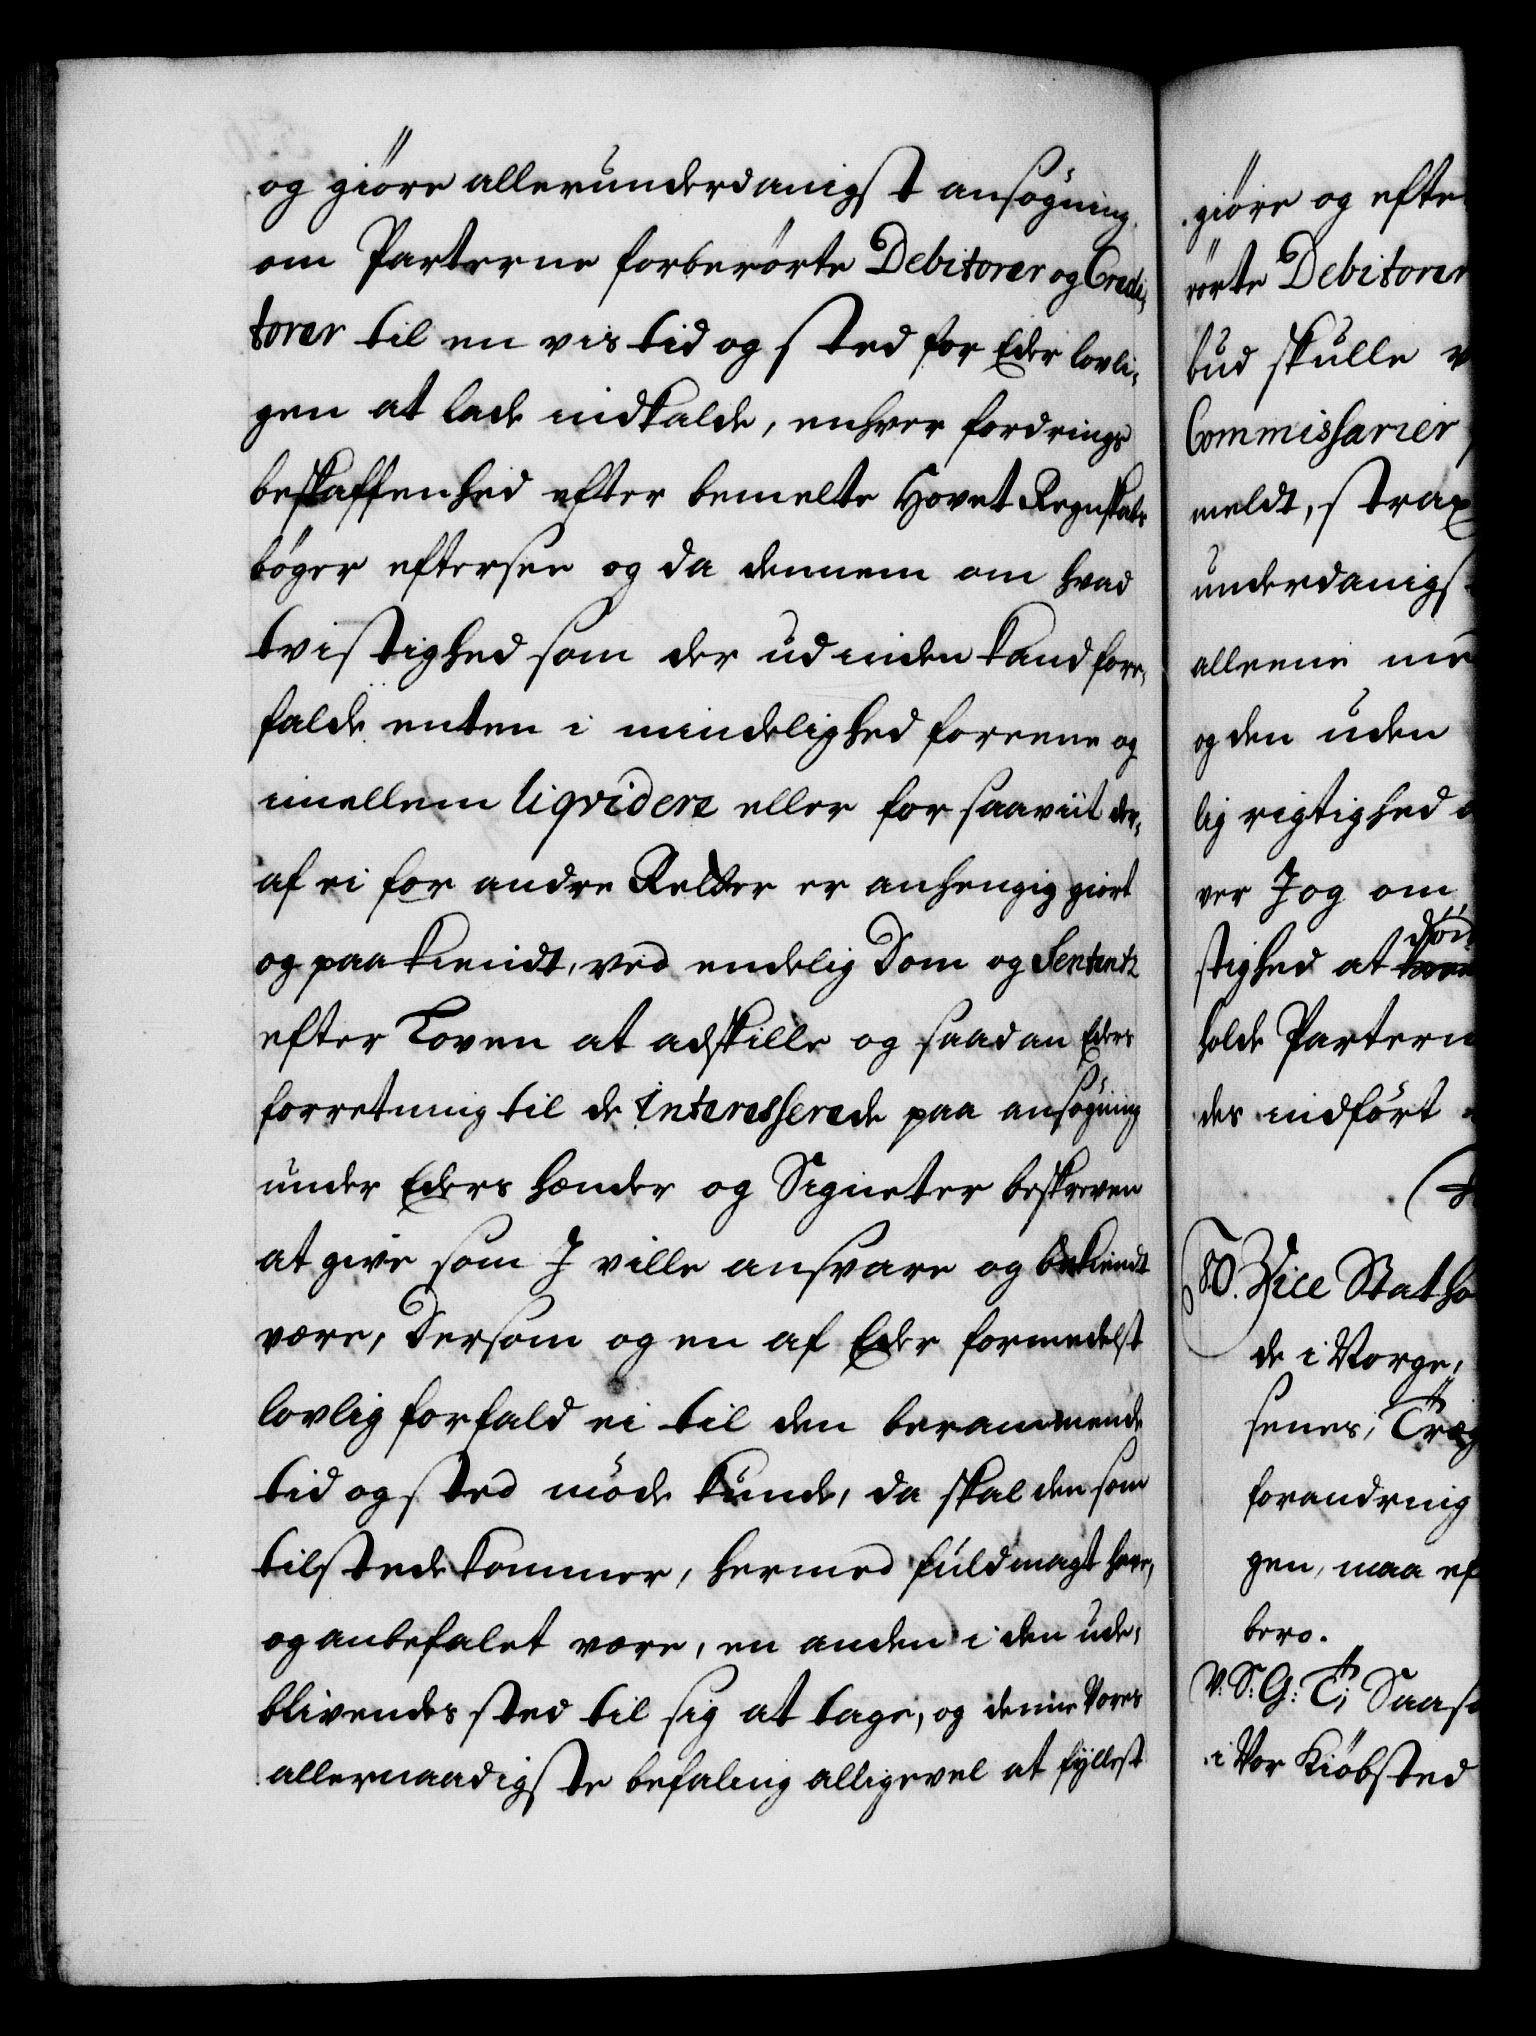 og giöre allerunderdanigst ansøgning
om Parterne forberørte Debitorer og Credi,
torer til en vis tid og sted for Eder lovli,
gen at lade indkalde, enhver fordrings
beskaffenhed efter bemelte Hovet Regnskabs
bøger eftersee og da dennem om hvad
tvistighed som der udinden kand fore,
falde enten i mindelighed foreene og
imellem liqvidere eller for saaviit der,
af ei for andre Retter er anhengig giort
og paakiendt, ved endelig Dom og Sententz
efter Loven at adskille og saadan Eders
forretning til de Interesserede paa ansøgning
under Eders hænder og Signeter beskreven
at give som I ville ansvare og bekiendt
være, Dersom og en af Eder formedelst
lovlig forfald ei til den berammende
tid og sted møde kunde, da skal den som
tilstede kommer, hermed fuldmagt have,
og anbefalet være, en anden i den ude,
blivendes sted til sig at tage, og denne Vores
allernaadigste befaling alligevel at fyllest
giöre og efte
rørte Debitorer
bud skulle
Commissarier
meldt, strax
underdanigs
alleene
og den uden
lig rigtighed
ver I og om
stighed at
holde Partern
des indført
Vice Statho
de i Norge,
senes, Trög
forandring
gen, maa ef
bero.
V: S: G: T; Saas
i Vor Kiöbsted